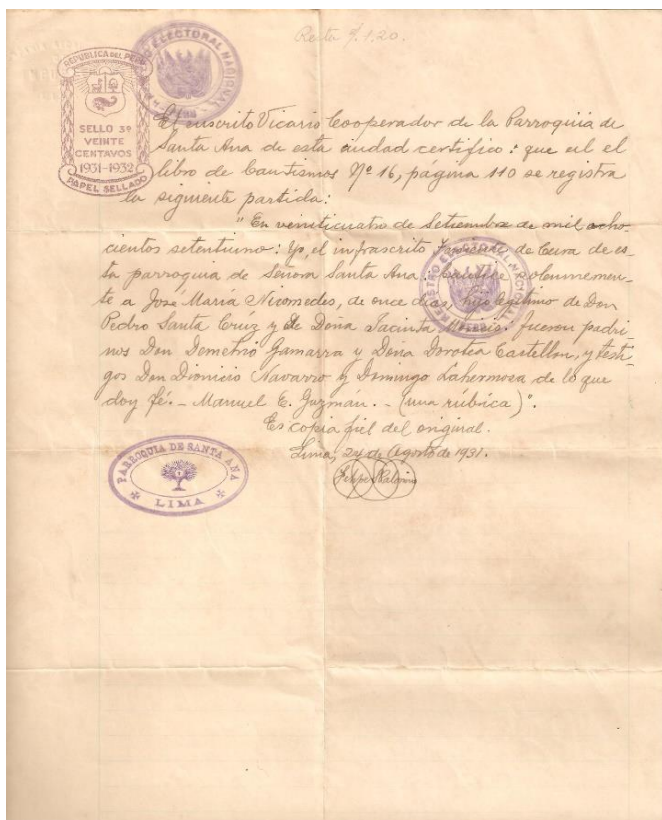 Recta S/. 1.20.
REPUBLICA DEL PERU
SELLO 3º
VEINTE
CENTAVOS
1931-1932
PAPEL SELLADO
ELECTORAL NACIONAL
El suscrito Vicario Cooperador de la Parroquia de
Santa Ana de esta ciudad certifico: que en el
libro de bautismos Nº 16, página 110 se registra
la siguiente partida:
"En veinticuatro de Setiembre de mil ocho-
cientos setentiuno: Yo, el infrascrito Teniente de Cura de es-
ta parroquia de Señora Santa Ana bauticé solemnemen-
te a José María Nicomedes, de once días, hijo legítimo de Don
Pedro Santa Crúz y de Doña Jacinta fueron padri
nos Don Demetrio Gamarra y Doña Dorotea Castellon, y testi-
gos Don Dionicio Navarro y Domingo Lahermosa de lo que
doy fé. - Manuel E. Guzmán. - (una rúbrica)".
Es copia fiel del original.
Lima, 24 de Agosto de 1931.
REGISTRO ELECTORAL NACIONAL
PARROQUIA DE SANTA ANA
LIMA
Felipe